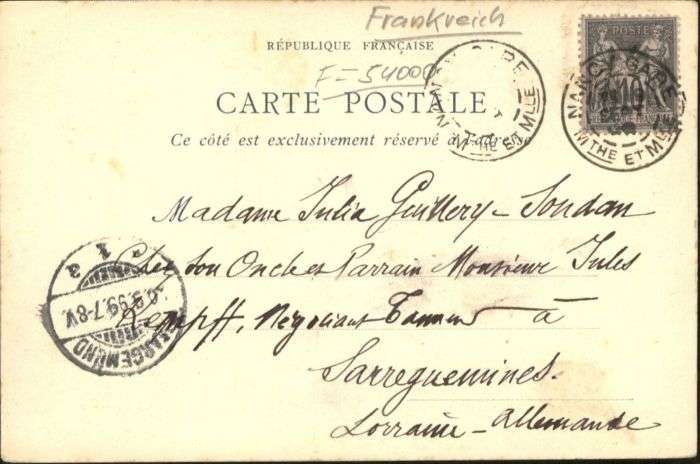 Frankreich
RÉPUBLIQUE FRANÇAISE
F=54000
CARTE POSTALE
Ce côté est exclusivement réservé à l'adresse
POSTE
10
NANCY GARE
MTHE ET MLLE
NANCY GARE
MTHE ET MLLE
Madame Julia Guillery-Soudan
Chez son Oncle et Parrain Monsieur Jules
Kempff, Négociant Tanneur à
Sarreguemines.
Lorraine-allemande
1 3
9.99.7-8V.
SAARGEMÜND